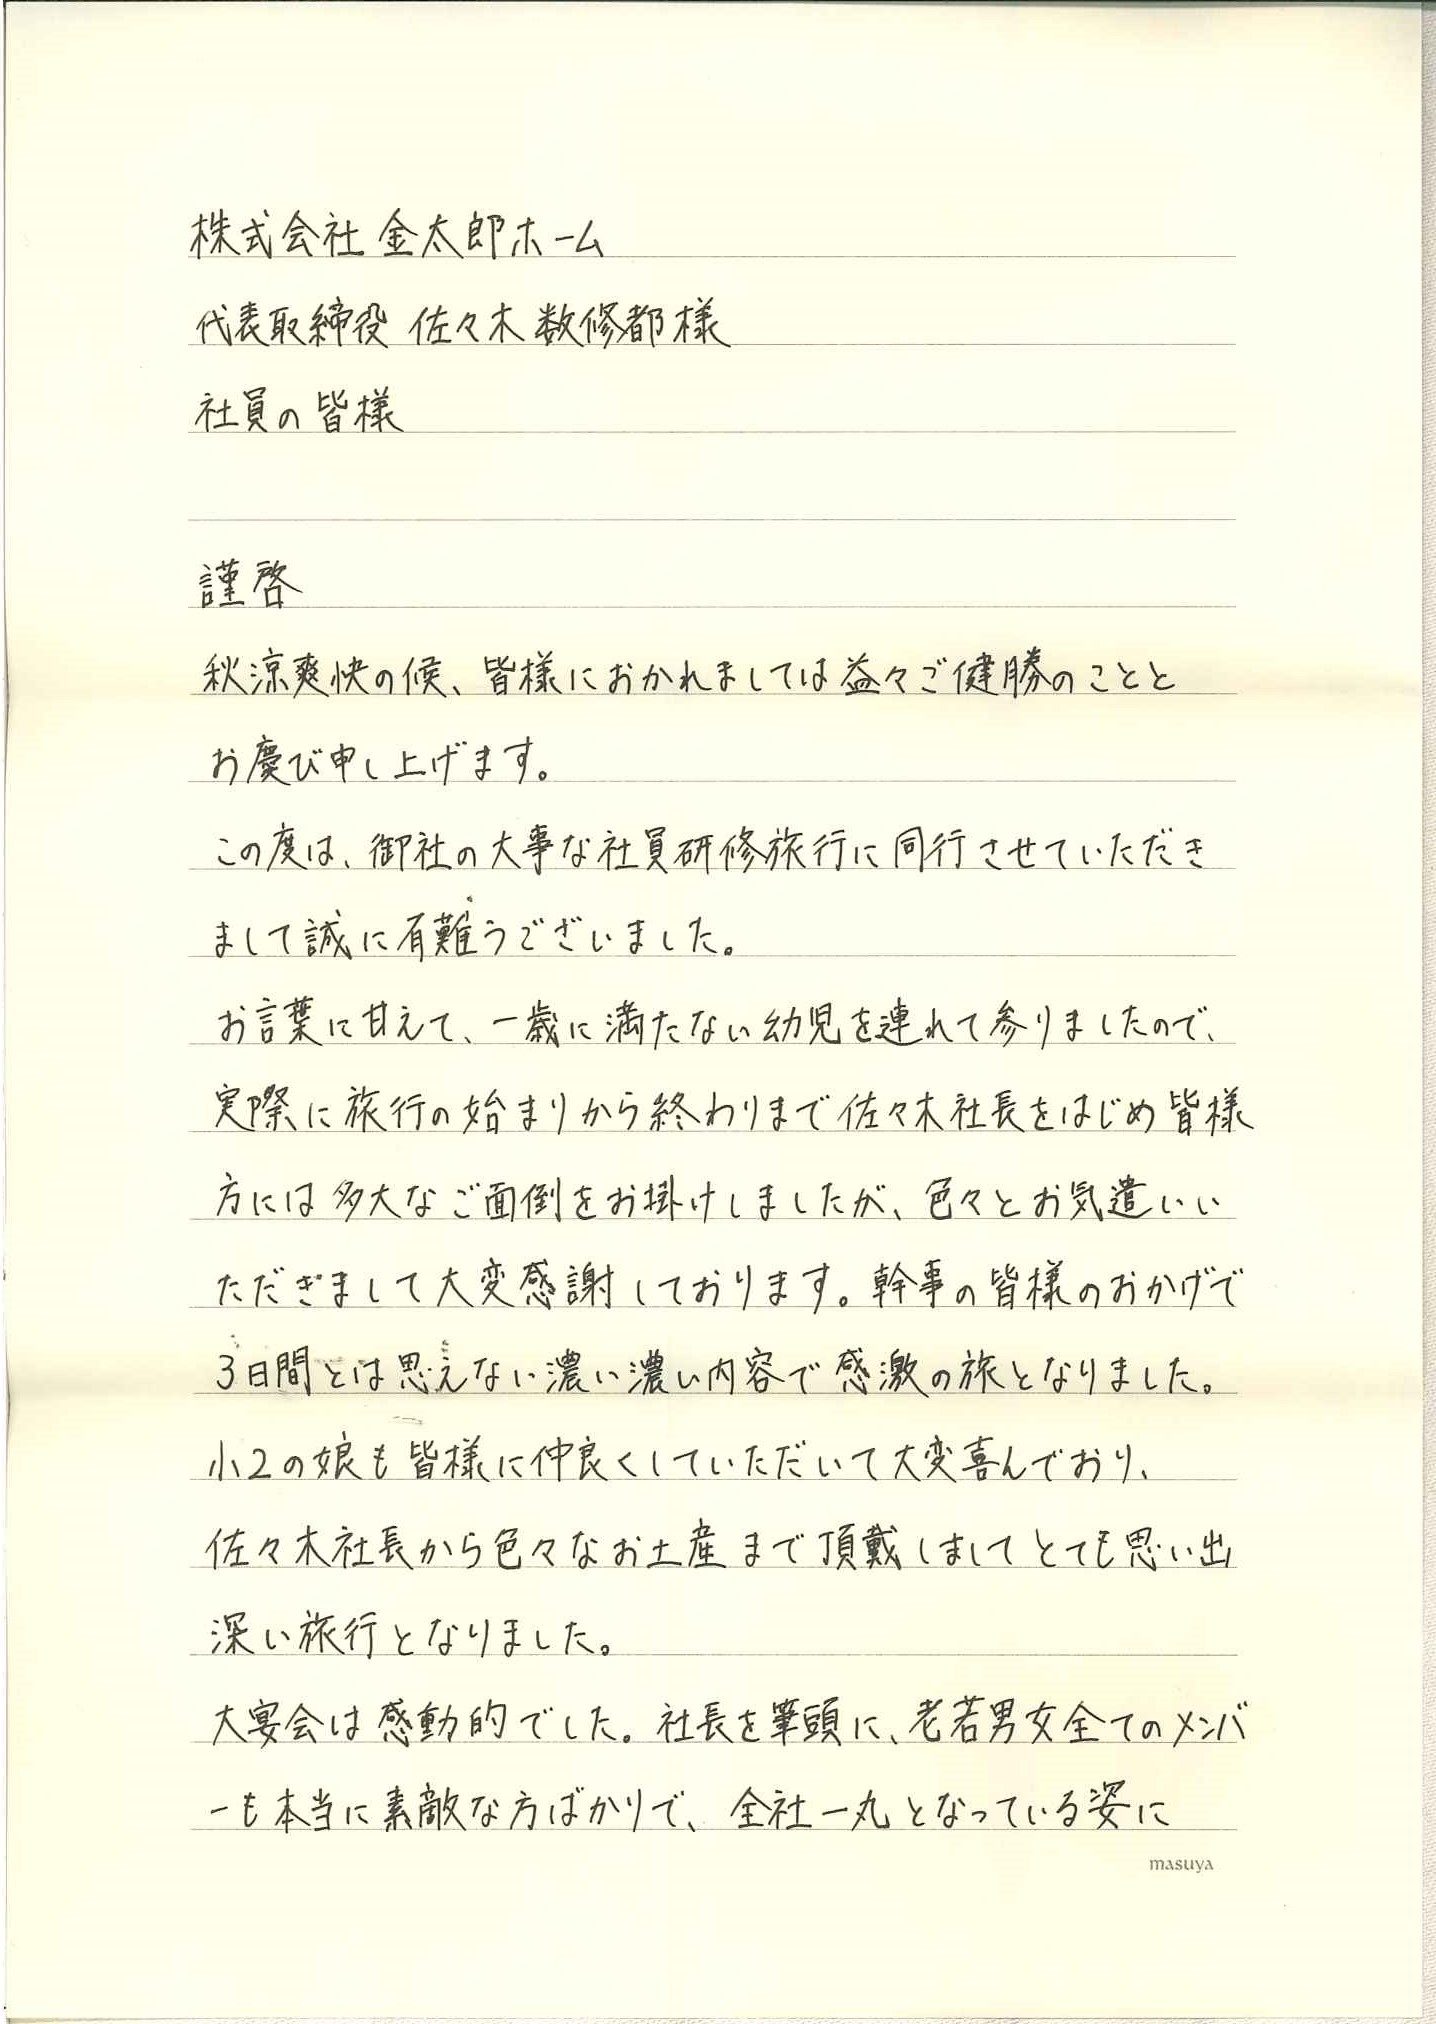 株式会社 金太郎ホーム
代表取締役 佐々木 数修都 様
社員の皆様
謹啓
秋涼爽快の候、皆様におかれましては益々ご健勝のことと
お慶び申し上げます。
この度は、御社の大事な社員研修旅行に同行させていただき
まして誠に有難うございました。
お言葉に甘えて、一歳に満たない幼児を連れて参りましたので、
実際に旅行の始まりから終わりまで佐々木社長をはじめ皆様
方には多大なご面倒をお掛けしましたが、色々とお気遣いい
ただぎまして大変感謝しております。幹事の皆様のおかげで
3日間とは思えない濃い濃い内容で感激の旅となりました。
小2の娘も皆様に仲良くしていただいて大変喜んでおり、
佐々木社長から色々なお土産まで頂戴しましてとても思い出
深い旅行となりました。
大宴会は感動的でした。社長を筆頭に、老若男女全てのメンバ
ーも本当に素敵な方ばかりで、全社一丸となっている姿に
masuya